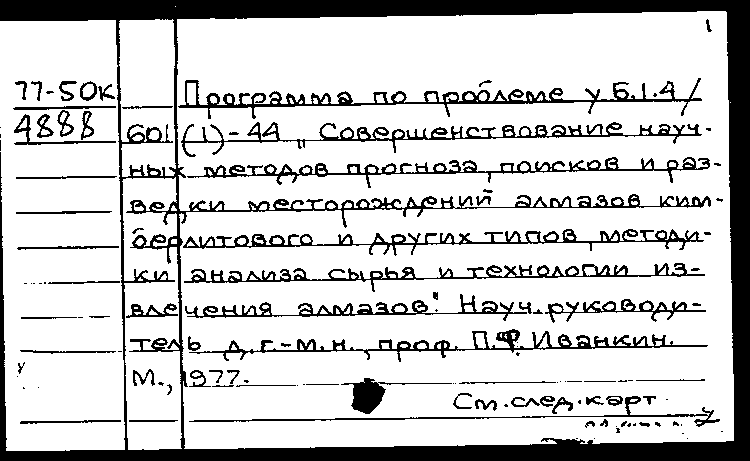 1
77-50к Программа по проблеме у Б.1.4/
4888 601(1)-44 „Совершенствование науч-
ных методов прогноза, поисков и раз-
ведки месторождений алмазов ким-
берлитового и других типов, методи-
ки анализа сырья и технологии из-
влечения алмазов". Науч. руководи-
тель д.г.-м.н., проф. П.Ф. Иванкин.
М., 1977.
См. след. карт